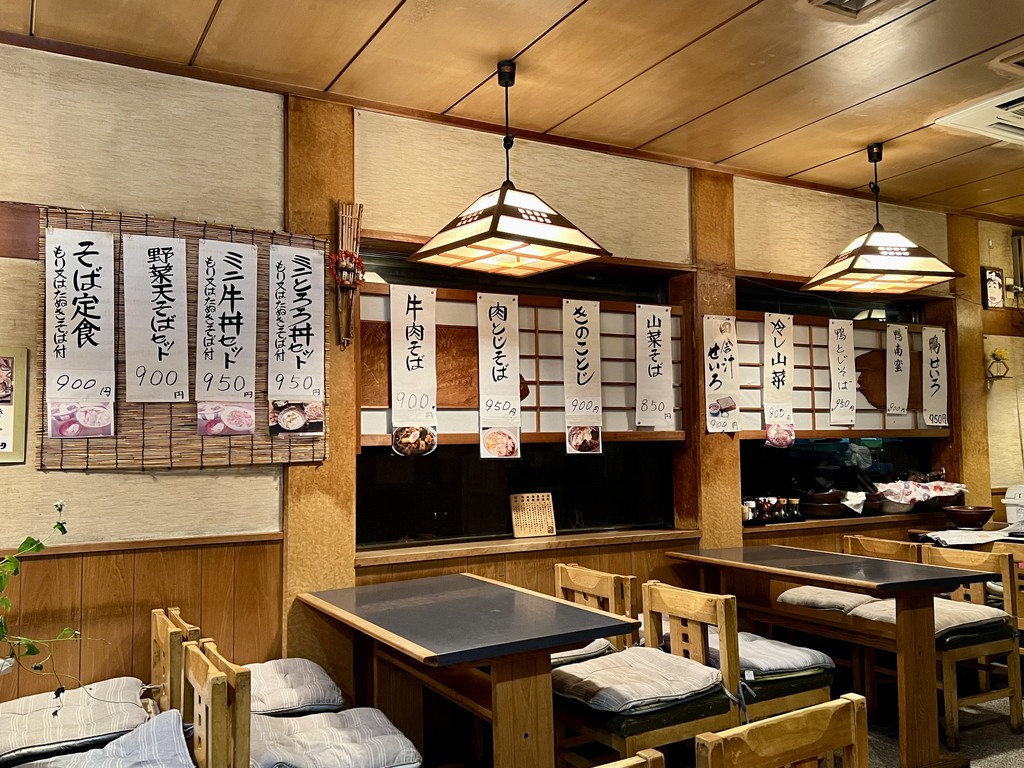 そば定食
もり又はたぬきそば付
900円
野菜天そばセット
900円
ミニ牛丼セット
もり又はたぬきそば付
950円
ミニとろろ丼セット
もり又はたぬきそば付
950円
牛肉そば
900円
肉とじそば
950円
きのことじ
900円
山菜そば
850円
せいろ
900円
冷し山菜
900円
鴨とじそば
950円
鴨南蛮
900円
鴨せいろ
950円